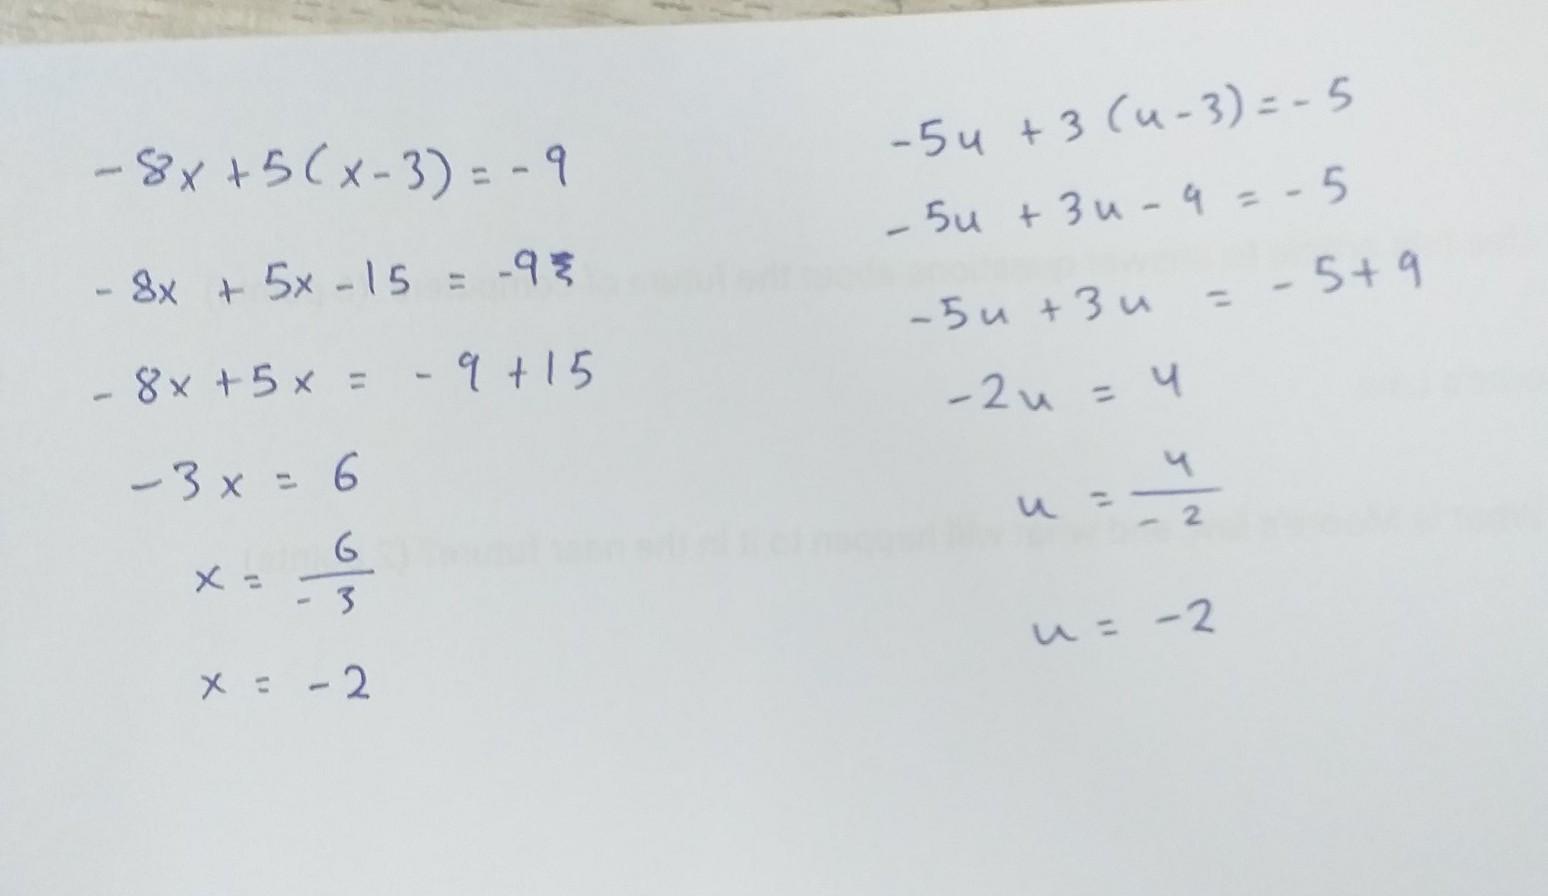 -8x + 5(x-3) = -9
-8x + 5x - 15 = -9
-8x + 5x = -9 + 15
-3x = 6
x = 6/-3
x = -2
-5u + 3(u-3) = -5
-5u + 3u - 9 = -5
-5u + 3u = -5 + 9
-2u = 4
u = 4/-2
u = -2